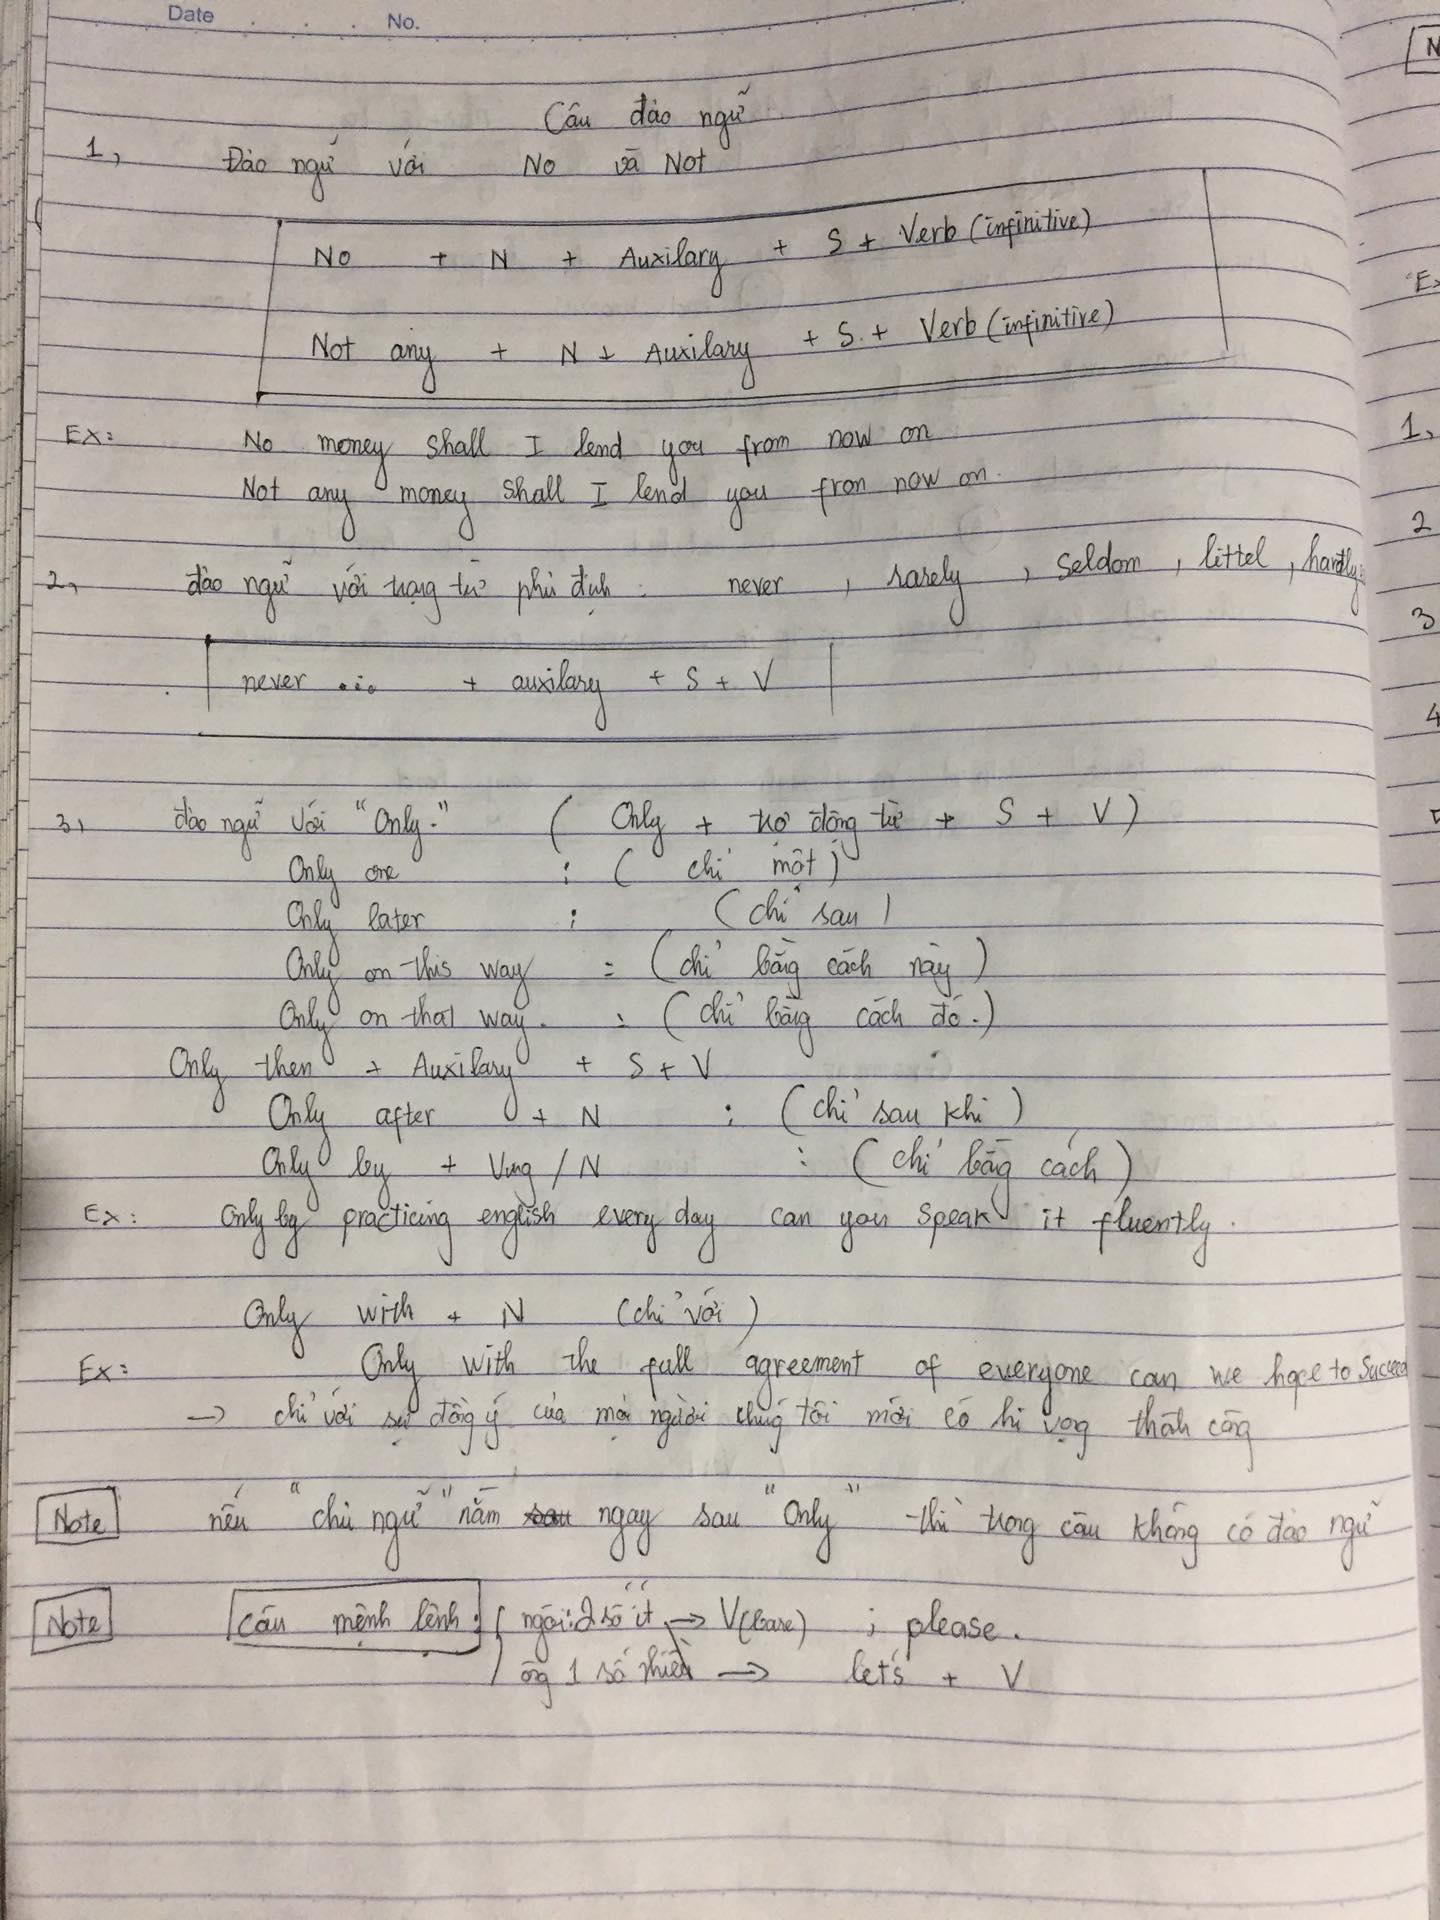 Date . . . No.
Câu đảo ngữ
1, Đảo ngữ với No và Not
No + N + Auxilary + S + Verb (infinitive)
Not any + N + Auxilary + S. + Verb (infinitive)
EX: No money shall I lend you from now on
Not any money shall I lend you fron now on.
2, đảo ngữ với trạng từ phủ định : never , rarely , seldom , littel , hardly
never ... + auxilary + S + V
3, đảo ngữ với "Only." ( Only + trợ động từ + S + V )
Only one : ( chỉ một )
Only later : ( chỉ sau )
Only on this way : ( chỉ bằng cách này )
Only on that way. : ( chỉ bằng cách đó. )
Only then + Auxilary + S + V
Only after + N : ( chỉ sau khi )
Only by + Ving / N : ( chỉ bằng cách )
Ex: Only by practicing english every day can you speak it fluently.
Only with + N ( chỉ với )
Ex: Only with the full agreement of everyone can we hope to Succeed
→ chỉ với sự đồng ý của mọi người chúng tôi mới có hi vọng thành công
Note nếu "chủ ngữ" nằm ngay sau "Only" thì trong câu không có đảo ngữ
Note câu mệnh lệnh : ( ngôi : 2 số ít → V(bare) ; please.
1 số nhiều → let's + V
N
Ex
1,
2
3
4